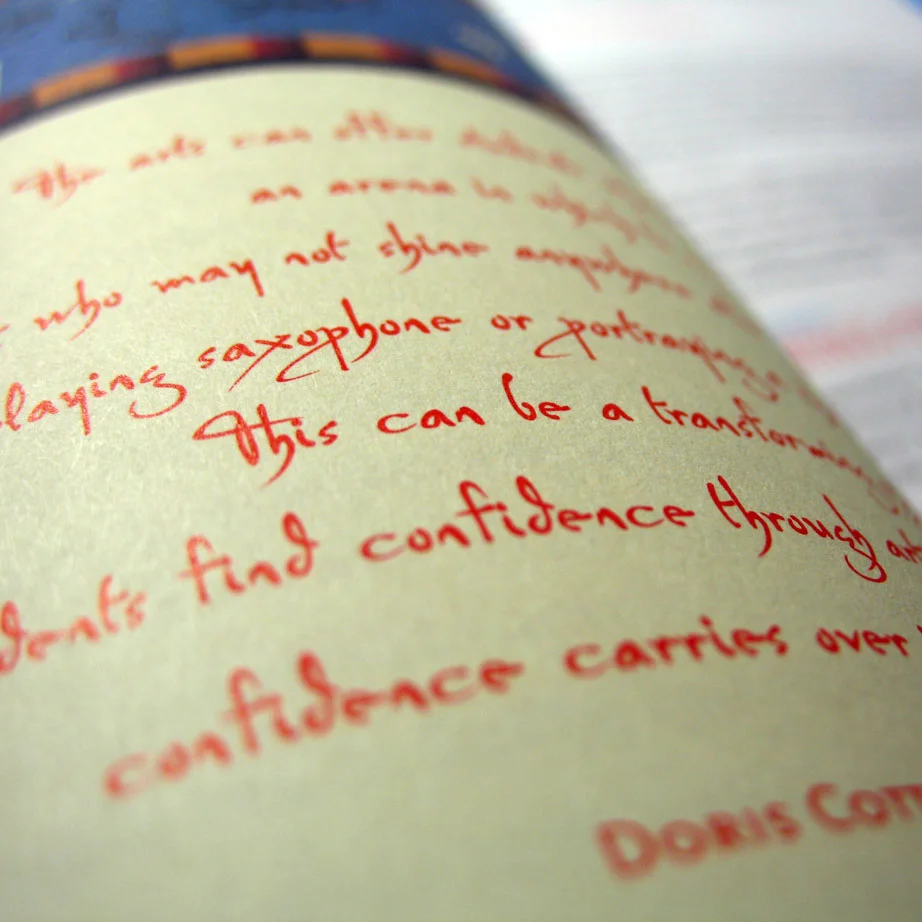 The arts can offer
an arena in which
who may not shine anywhere
laying saxophone or portraying
This can be a transforming
dents find confidence through
confidence carries over
DORIS COTT